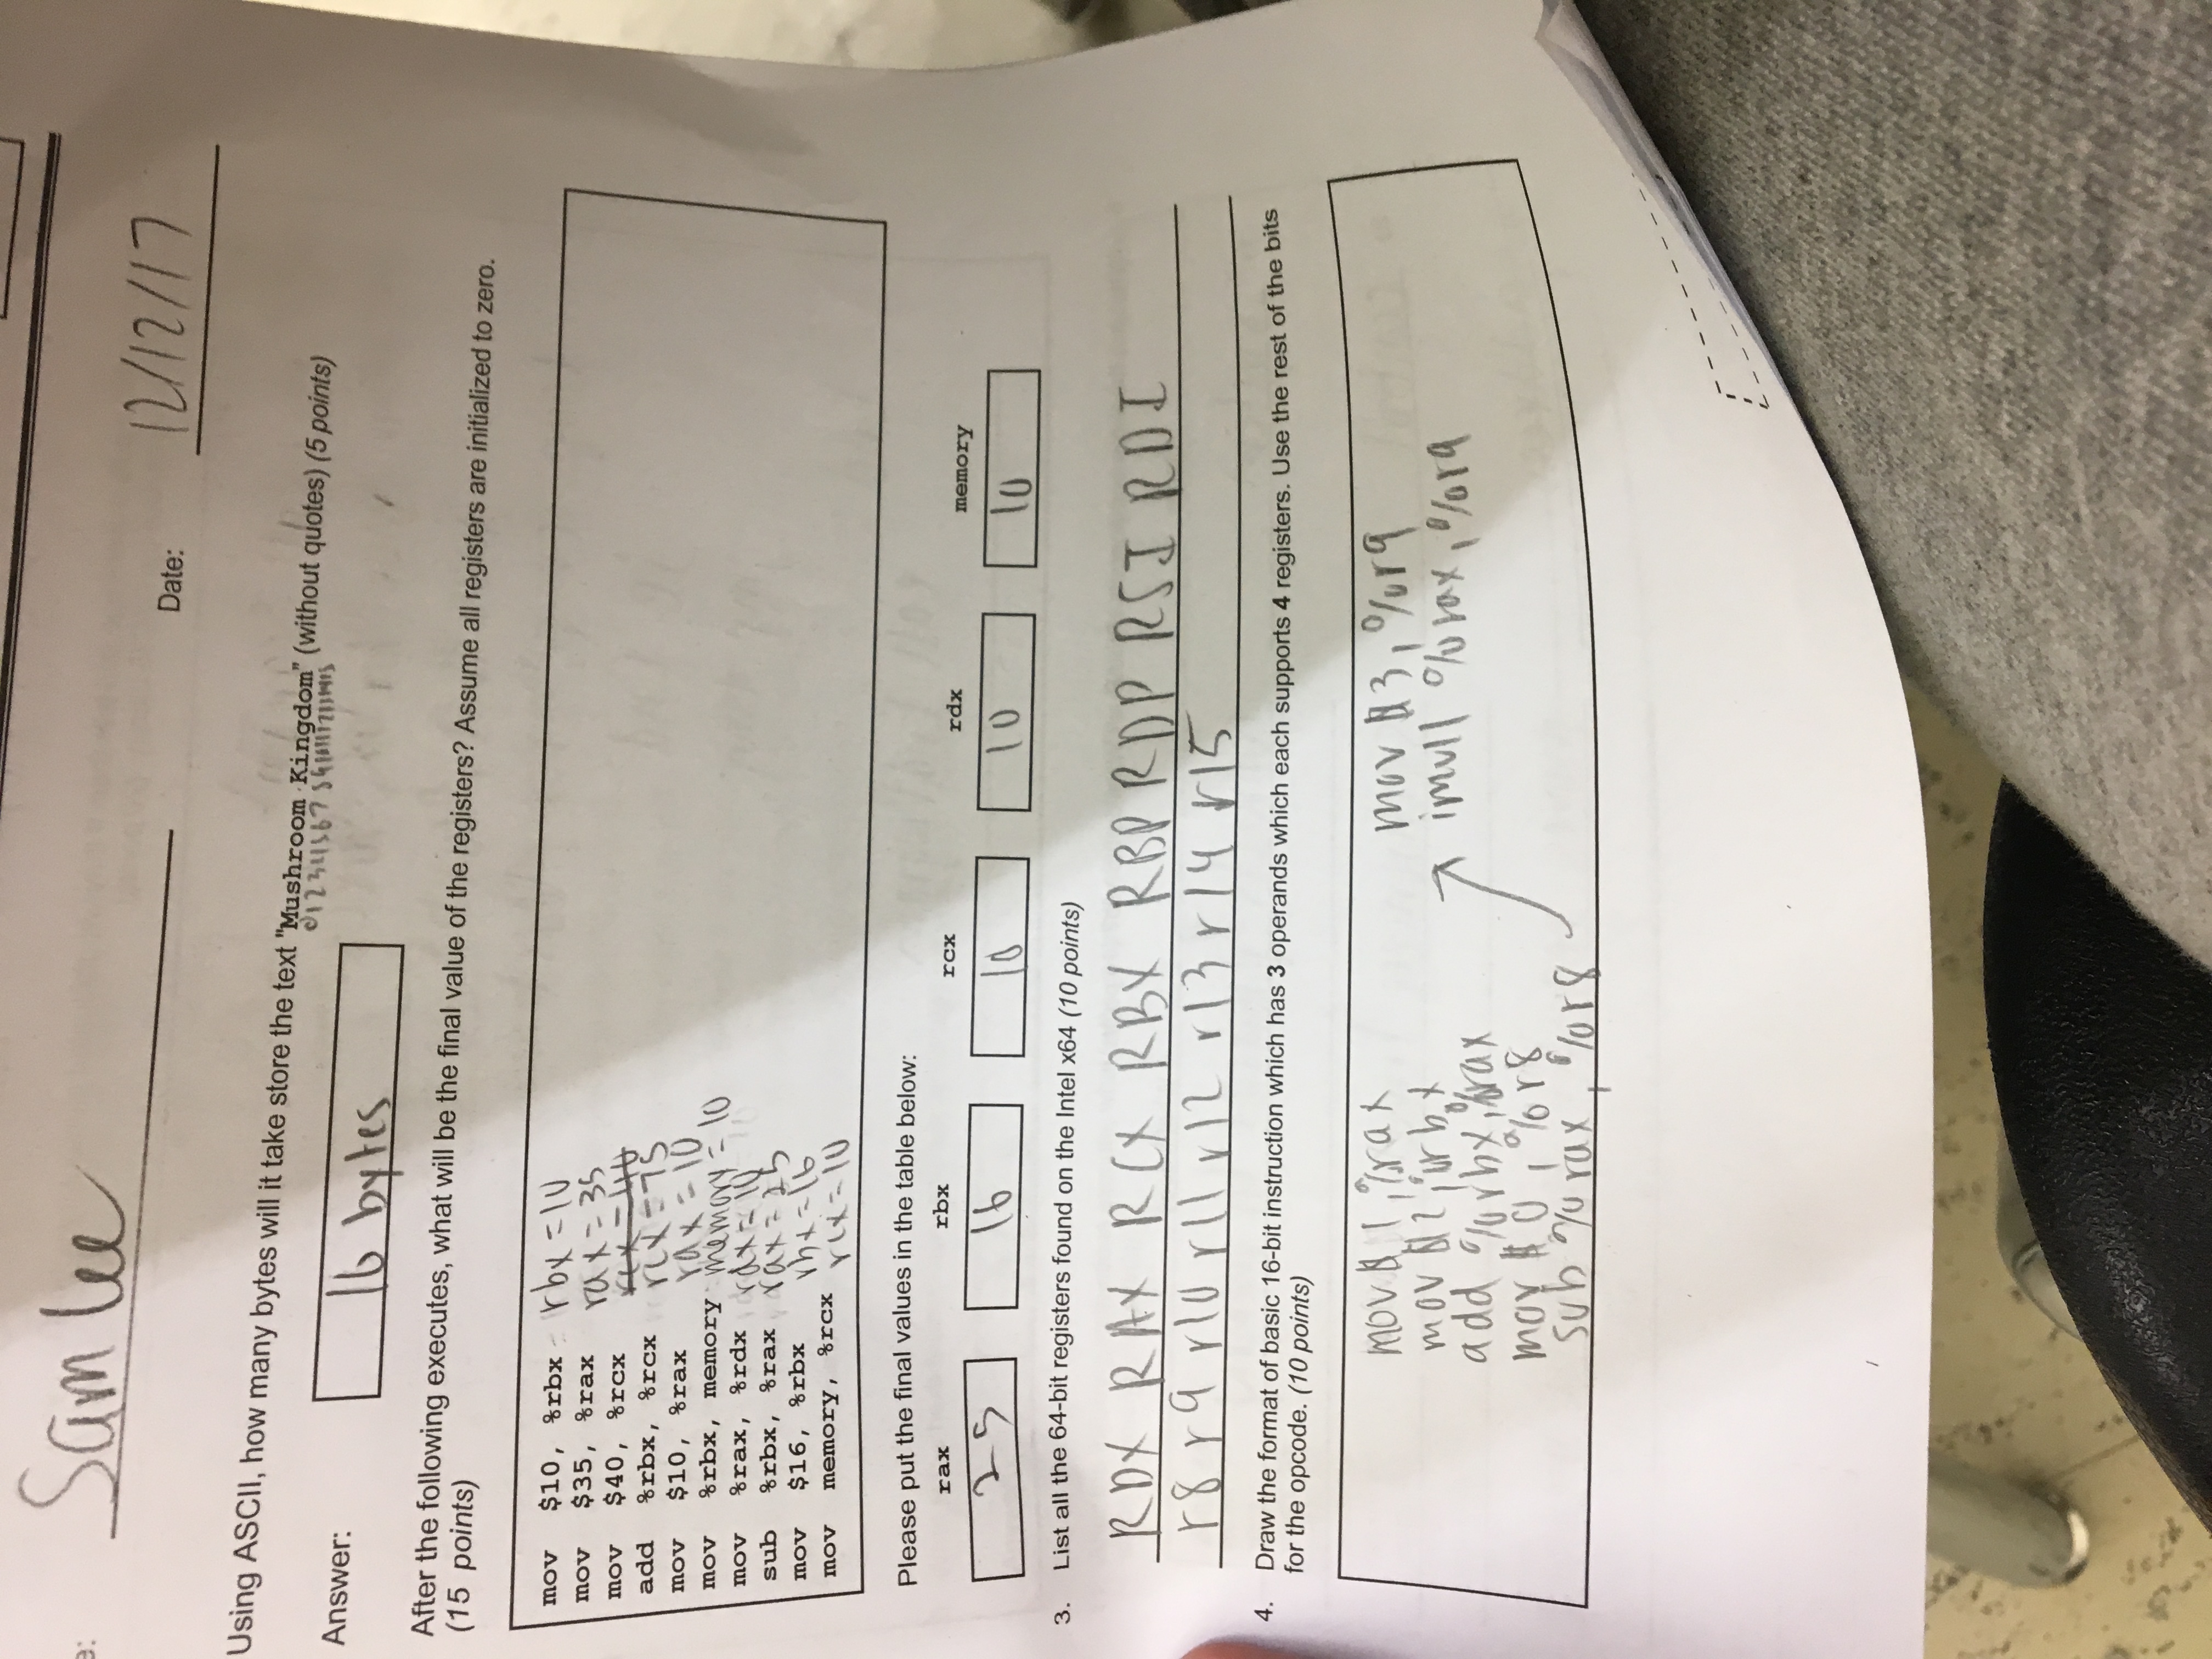 e: Sam Lee
Date: 12/12/17
Using ASCII, how many bytes will it take store the text "Mushroom Kingdom" (without quotes) (5 points)
Answer: 16 bytes
After the following executes, what will be the final value of the registers? Assume all registers are initialized to zero.
(15 points)
mov $10, %rbx rbx = 10
mov $35, %rax rax = 35
mov $40, %rcx rcx = 40
add %rbx, %rcx rcx = 75
mov $10, %rax rax = 10
mov %rbx, memory memory = 10
mov %rax, %rdx rdx = 10
sub %rbx, %rax rax = 25
mov $16, %rbx rbx = 16
mov memory, %rcx rcx = 10
Please put the final values in the table below:
rax rbx rcx rdx memory
25 16 10 10 10
3. List all the 64-bit registers found on the Intel x64 (10 points)
RDX RAX RCX RBX RBP RDP RSI RDI
r8 r9 r10 r11 r12 r13 r14 r15
4. Draw the format of basic 16-bit instruction which has 3 operands which each supports 4 registers. Use the rest of the bits
for the opcode. (10 points)
mov $1, %rax
mov $2, %rbx
add %rbx, %rax
mov $0, %r8
sub %rax, %r8
mov $3, %r9
imull %rax, %r9